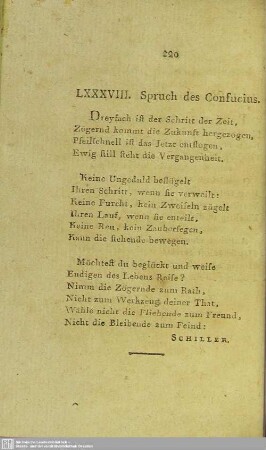 220
LXXXVIII. Spruch des Confucius.
Dreyfach ist der Schritt der Zeit,
Zögernd kommt die Zukunft hergezogen,
Pfeilschnell ist das Jetzt entflogen,
Ewig still steht die Vergangenheit.
Keine Ungeduld beflügelt
Ihren Schritt, wenn sie verweilt:
Keine Furcht, kein Zweifeln zügelt
Ihren Lauf, wenn sie enteilt,
Keine Reu, kein Zaubersegen,
Kann die stehende bewegen.
Möchtest du beglückt und weise
Endigen des Lebens Reise?
Nimm die Zögernde zum Rath,
Nicht zum Werkzeug deiner That,
Wähle nicht die Fliehende zum Freund,
Nicht die Bleibende zum Feind:
SCHILLER.